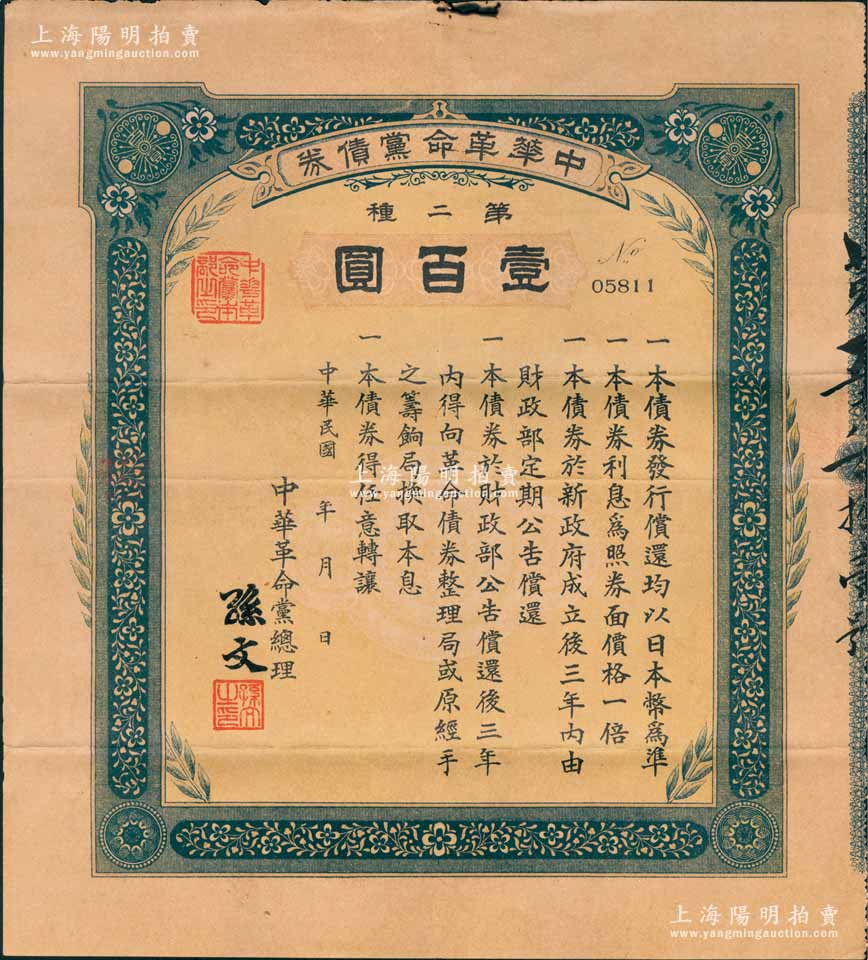 上海陽明拍賣
www.yangmingauction.com
中華革命黨債券
第二種
壹百圓
No
05811
中華革命黨本部之印
一本債券發行償還均以日本幣為準
一本債券利息為照券面價格一倍
一本債券於新政府成立後三年內由
財政部定期公告償還
一本債券於財政部公告償還後三年
內得向革命債券整理局或原經手
之籌餉局換取本息
一本債券得任意轉讓
中華民國 年 月 日
中華革命黨總理
孫文
孫文之印
上海陽明拍賣
www.yangmingauction.com
上海陽明拍賣
www.yangmingauction.com